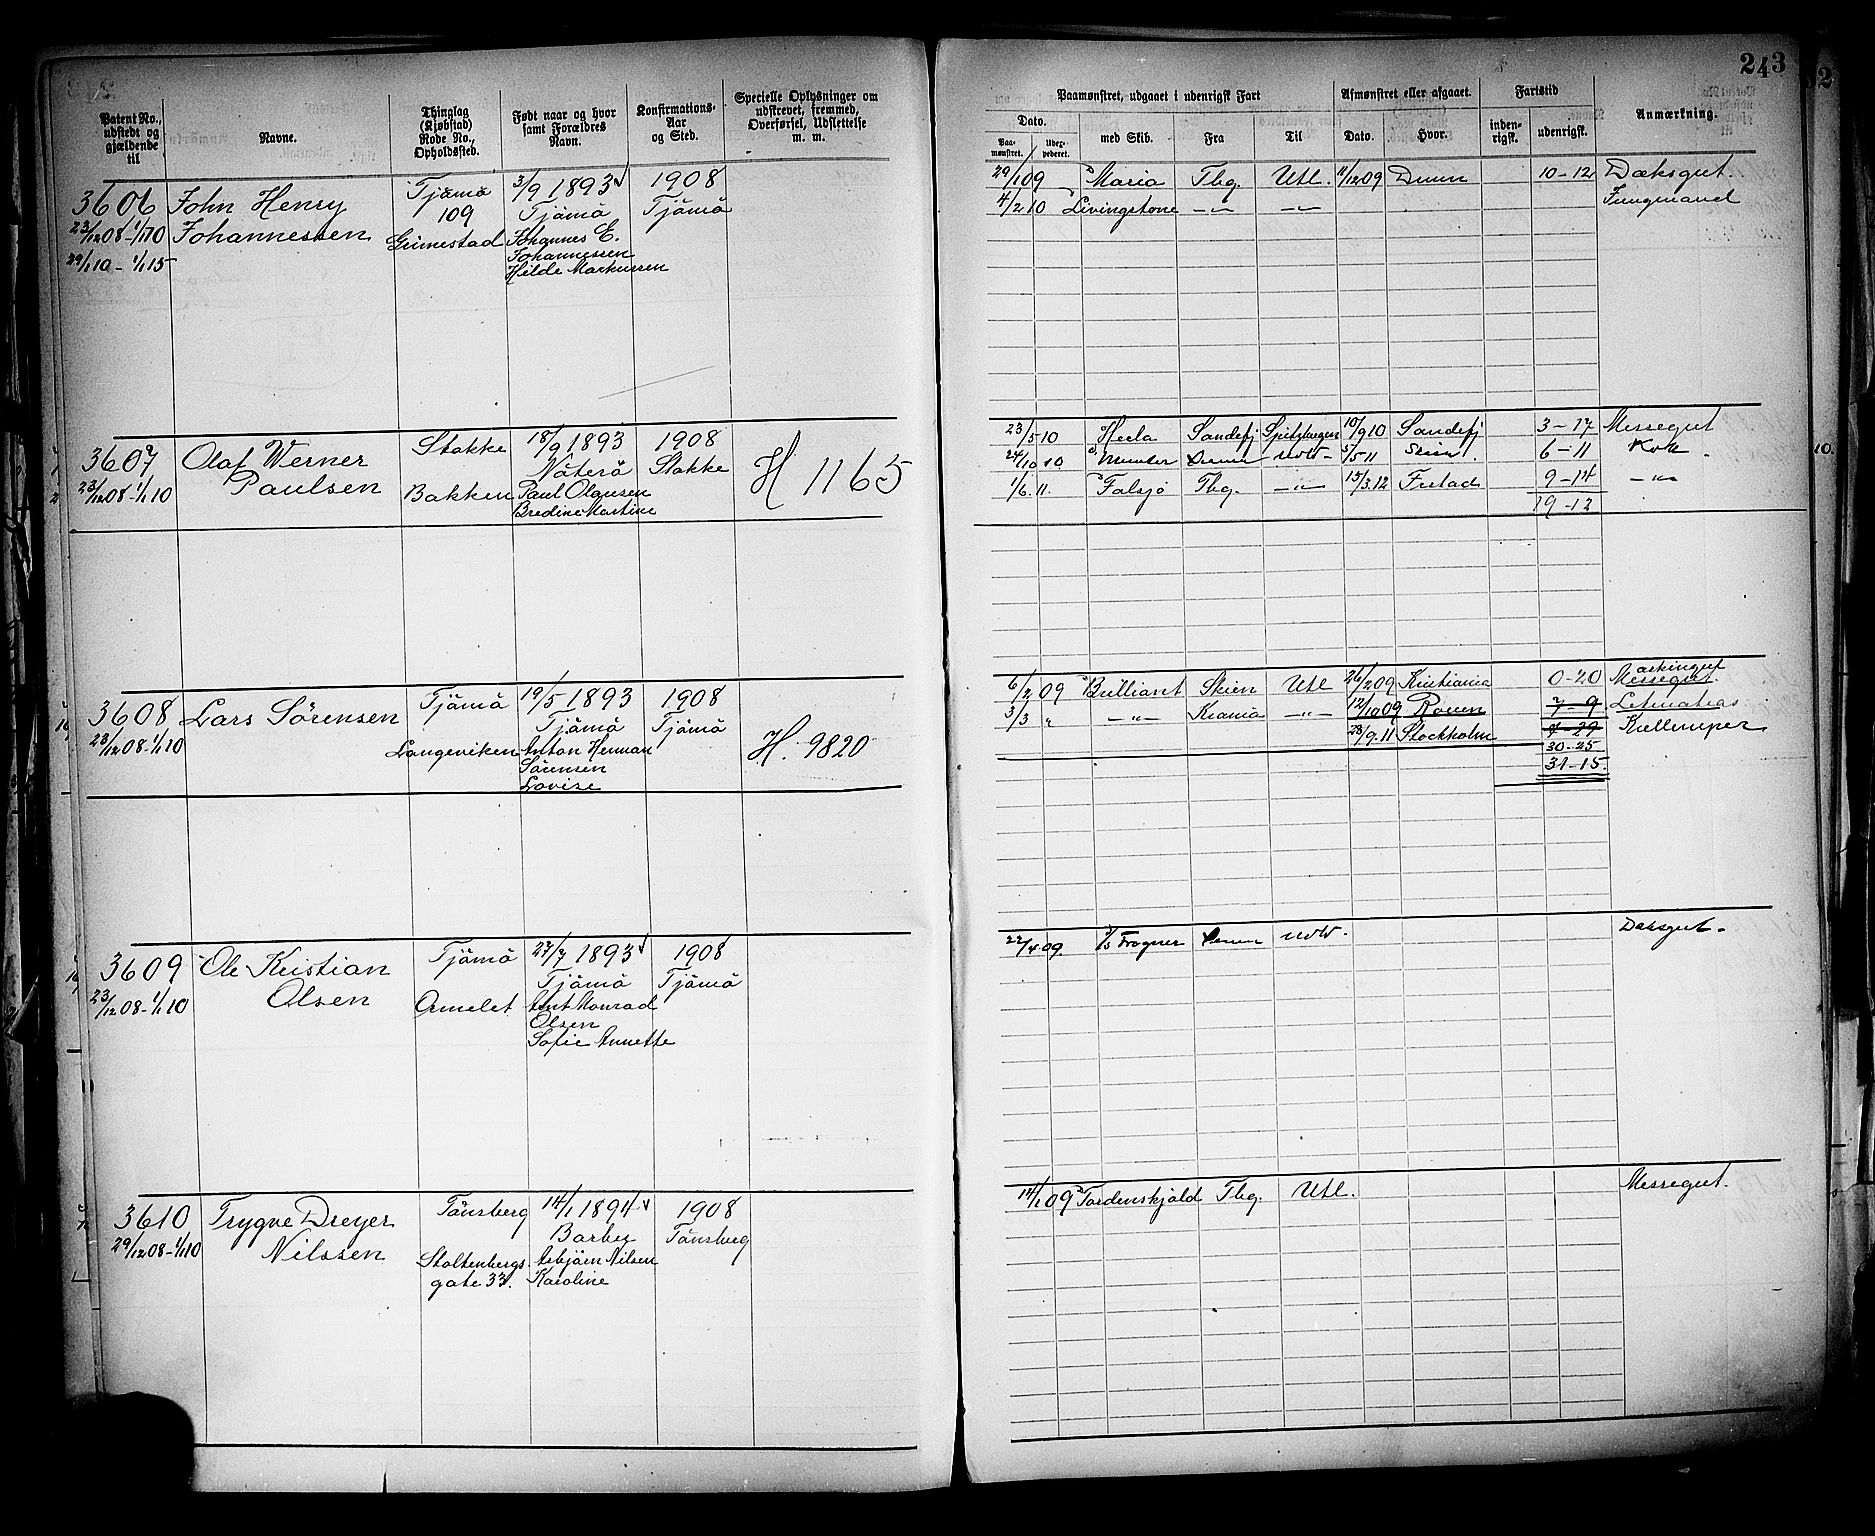 243
Patent No., udstedt og gjældende til
Navne.
Thinglag (Kjøbstad) Rode No., Opholdssted.
Født naar og hvor samt Forældres Navn.
Konfirmations-Aar og Sted.
Specielle Oplysninger om udskrevet, fremmed, Overførsel, Udslettelse m. m.
Paamønstret, udgaaet i udenrigsk Fart
Afmønstret eller afgaaet.
Fartstid
Anmærkning.
Dato.
med Skib.
Fra
Til
Dato.
Hvor.
inden-rigsk.
udenrigsk.
Paa-mønstret.
3606 John Henry Tjømø 3/9 1893 1908
23/12 08-1/1 10 Johannessen 109 Tjømø Tjømø
29/1 10-1/1 15 Grimestad Johannes E.
Johannessen
Hilde Markussen
29/1 09 Maria Tbg. Utl. 11/12 09 Drmn 10-12 Dæksgut.
4/2 10 Livingstone -"- -"- Jungmand
3607 Olaf Werner Stokke 18/9 1893 1908 H 1165
23/12 08-1/1 10 Paulsen Bakken Nøterø Stokke
Paul Olausen
Bredine Martine
23/5 10 Hecla Sandefj Spitzbergen 10/9 10 Sandefj 3-17 Messegut
24/10 10 Drmn Utl. 5/5 11 Skien 6-11 Kok
1/6 11. Falsjø Tbg. -"- 15/3 12 Frstad 9-14 -"-
19-12
3608 Lars Sørensen Tjømø 19/5 1893 1908 H. 9820
23/12 08-1/1 10 Langeviken Tjømø Tjømø
Anton Herman
Sørensen
Lovise
6/2 09 Brilliant Skien Utl 26/2 09 Kristiania 0-20 Messegut.
3/3 " -"- Krania -"- 12/10 09 Rouen 7-9 Letmatros
23/9 11 Stockholm 7-29 Kullemper
30-25
31-15.
3609 Ole Kristian Tjømø 27/7 1893 1908
23/12 08-1/1 10 Olsen Ormelet Tjømø Tjømø
Ant Konrad
Olsen
Sofie Annette
22/4 09. Frogner Drmn Utl. Deksgut.
3610 Trygve Dreyer Tønsberg 14/1 1894 1908
29/12 08-1/1 10 Nilssen Stoltenbergs gate 33. Barbu Tønsberg
Asbjørn Nilsen
Karoline
14/1 09 Tordenskjold Tbg. Utl. Messegut.